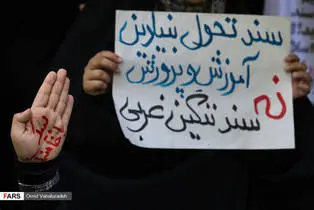 سند تحول بنیادین
آموزش و پرورش
نه
سند ننگین غربی
FARS
Omid Vahabzadeh